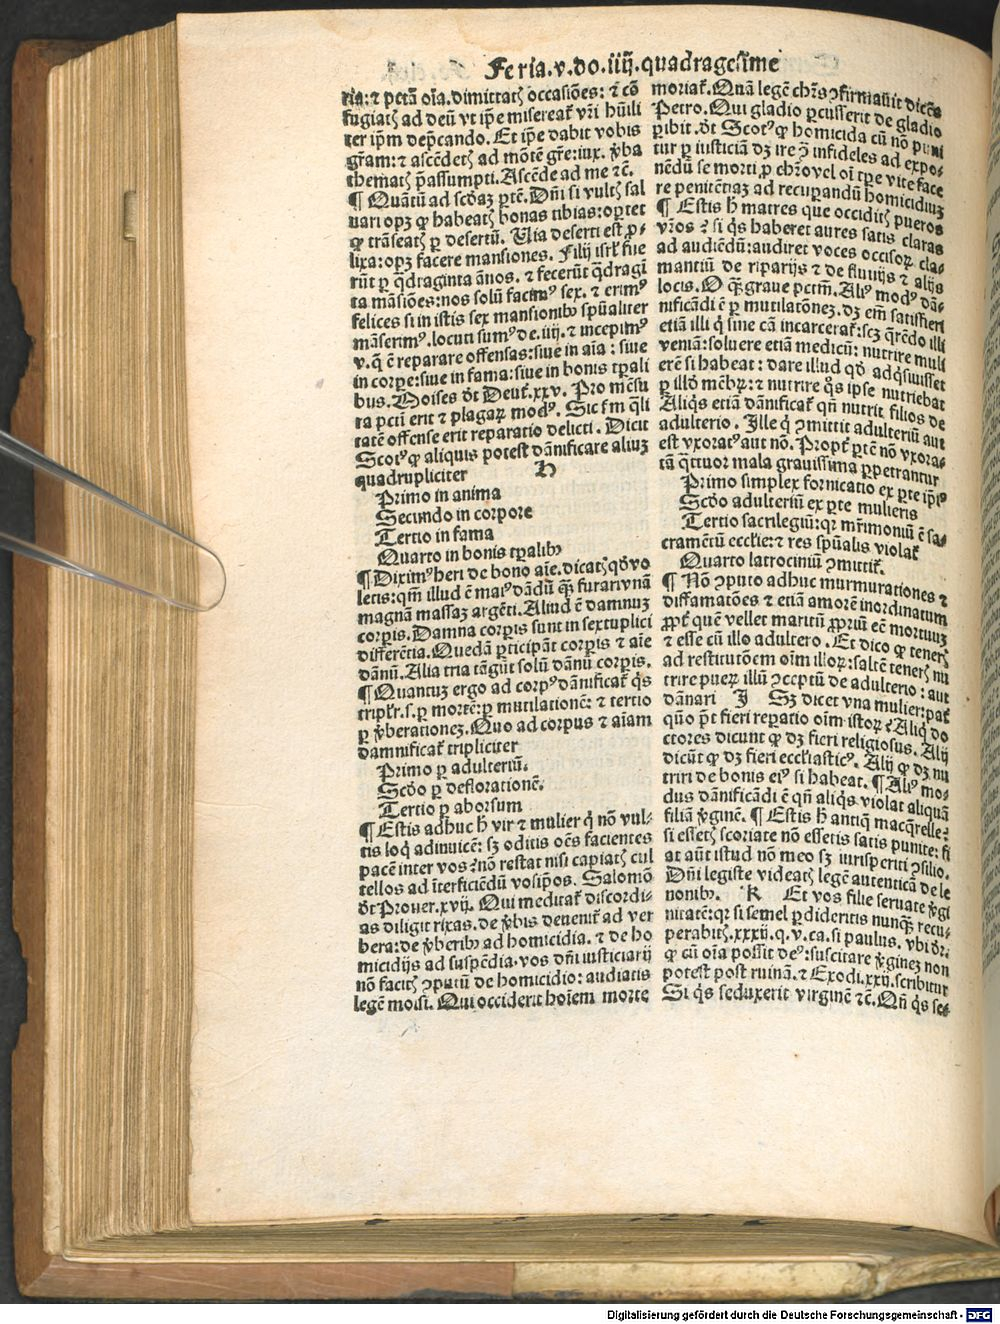 Feria.v.do.iiij.quadragesime
ria: ⁊ petā oīa.dimittatꝭ occasiões: ⁊ cō
fugiatꝭ ad deū vt ip̄e misereat᷑ vr̄i hūili
ter ip̄m dep̄cando. Et ip̄e dabit vobis
gr̄am: ⁊ ascēdetꝭ ad mōtē gr̄e:iux. v̄ba
thematꝭ p̄assumpti. Ascēde ad me ⁊c̄.
¶ Quātū ad scd̄az ꝑtē. Dn̄i si vultꝭ sal
uari opꝫ ꝙ habeatꝭ bonas tibias:oꝑtet
ꝙ trāseatꝭ ꝑ desertū. Uia deserti est ꝓ-
lixa:opꝫ facere mansiones. Filij isrl̓ fue
rūt ꝑ q̄draginta ānos. ⁊ fecerūt q̄dragī
ta māsiões:nos solū facimꝰ sex. ⁊ erimꝰ
felices si in istis sex mansionibꝰ sp̄ualiter
māserimꝰ.locuti sumꝰ de.iiij. ⁊ incepimꝰ
v. q̄ ē reparare offensas:siue in aīa : siue
in corꝑe:siue in fama:siue in bonis tp̄ali
bus. Moises dt̄ Deut̓.xxv. Pro mēsu
ra pctī erit ⁊ plagaꝝ modꝰ. Sic fm̄ q̄li
tatē offense erit reparatio delicti. Dicit
Scotꝰ ꝙ aliquis potest dānificare aliuꝫ
quadrupliciter H
Primo in anima
Secundo in corpore
Tertio in fama
Quarto in bonis tp̄alibꝰ
¶ Diximꝰ heri de bono aīe. dicatꝭ qd̄ vo
letis:qm̄ illud ē maiꝰ dādū q̄ꝫ furari vnā
magnā massaꝫ argēti. Aliud ē damnuꝫ
corꝑis. Damna corꝑis sunt in sextuplici
differētia. Quedā ꝑticipāt corꝑis ⁊ aīe
dānū. Alia tria tāgūt solū dānū corꝑis.
¶ Quantuꝫ ergo ad corpꝰ dānificat᷑ q̄s
tripl̓r.s.ꝑ mortē:ꝑ mutilationē: ⁊ tertio
ꝑ v̄berationeꝫ. Quo ad corpus ⁊ aīam
damnificat᷑ tripliciter
Primo ꝑ adulteriū.
Scd̄o ꝑ deflorationē.
Tertio ꝑ aborsum
¶ Estis adhuc h̄ vir ⁊ mulier q̄ nō vul-
tis loq̄ adinuicē: sꝫ oditis oēs facientes
pacē inter vos ? nō restat nisi capiatꝭ cul
tellos ad īterficiēdū vosip̄os. Salomō
dt̄ Prouer.xvij. Qui meditat᷑ discordi-
as diligit rixas.de v̄bis deuenit᷑ ad ver
bera:de v̄beribꝰ ad homicidia. ⁊ de ho
micidijs ad suspēdia.vos dn̄i iusticiarij
nō facitꝭ ꝯputū de homicidio: audiatis
legē moisi. Qui occiderit hoīem morte
moriat᷑. Quā legē chr̄s ꝯfirmauit dicēs
Petro. Qui gladio ꝑcusserit de gladio
ꝑibit. dt̄ Scotꝰ ꝙ homicida cū nō puni
tur ꝑ iusticiā dꝫ ire ꝯ̄ infideles ad expo-
nēdū se morti ꝓ chr̄o vel oī tꝑe vite face
re penitētiaꝫ ad recuꝑandū homicidiuꝫ
¶ Estis h̄ matres que occiditꝭ pueros
vr̄os ? si q̄s haberet aures satis claras
ad audiēdū:audiret voces occisoꝝ cla-
mantiū de riparijs ⁊ de fluuijs ⁊ alijs
locis. O q̄ꝫ graue pctm̄. Aliꝰ modꝰ dā-
nificādi ē ꝑ mutilatōneꝫ. dꝫ em̄ satisfieri
etiā illi q̄ sine cā incarcerat᷑:scꝫ q̄rēdo illi
veniā:soluere etiā medicū: nutrire muli
erē si habeat : dare illud qd̄ adq̄siuisset
ꝑ illd̄ mēbꝝ: ⁊ nutrire q̄s ip̄se nutriebat
Aliq̄s etiā dānificat᷑ qn̄ nutrit filios de
adulterio. Ille q̄ ꝯmittit adulteriū aut
est vxoratꝰ aut nō. Propt̓ ꝑtē nō vxora-
tā q̄ttuor mala grauissima ꝑpetrantur
Primo simplex fornicatio ex ꝑte ip̄iꝰ
Scd̄o adulteriū ex ꝑte mulieris
Tertio sacrilegiū:qꝛ mr̄imoniū ē sa-
cramētū eccl̓ie: ⁊ res sp̄ualis violat᷑
Quarto latrociniū ꝯmittit᷑.
¶ Nō ꝯputo adhuc murmurationes ⁊
diffamatōes ⁊ etiā amorē inordinatum
ꝓpt̓ quē vellet maritū ꝓpriū eē mortuuꝫ
⁊ esse cū illo adultero. Et dico ꝙ tenetꝭ
ad restitutōem oīm illoꝝ:saltē tenetꝭ nu
trire pueꝝ illū ꝯceptū de adulterio : aut
dānari I Sꝫ dicet vna mulier:pat̓
quō p̄t fieri reꝑatio oīm istoꝝ ? Aliq̄ do
ctores dicunt ꝙ dꝫ fieri religiosus. Alij
dicūt ꝙ dꝫ fieri eccl̓iasticꝰ. Alij ꝙ dꝫ nu
triri de bonis eiꝰ si habeat. ¶ Aliꝰ mo-
dus dānificādi ē qn̄ aliq̄s violat aliquā
filiā v̄ginē. ¶ Estis h̄ antiq̄ macq̄relle ?
si essetꝭ scoriate nō essetis satis punite: fi
at aūt istud nō meo sꝫ iurisperiti ꝯsilio.
Dn̄i legiste videatꝭ legē autenticā de le
nonibꝰ. K Et vos filie seruate v̄gi
nitatē:qꝛ si semel ꝑdideritis nunq̄ꝫ recu-
perabitꝭ.xxxij.q.v.ca.si paulus. vbi dr̄:
ꝙ cū oīa possit deꝰ:suscitare v̄gineꝫ non
potest post ruinā. ⁊ Exodi.xxij.scribitur
Si q̄s seduxerit virginē ⁊c̄. Qn̄ q̄s se-
Digitalisierung gefördert durch die Deutsche Forschungsgemeinschaft - DFG